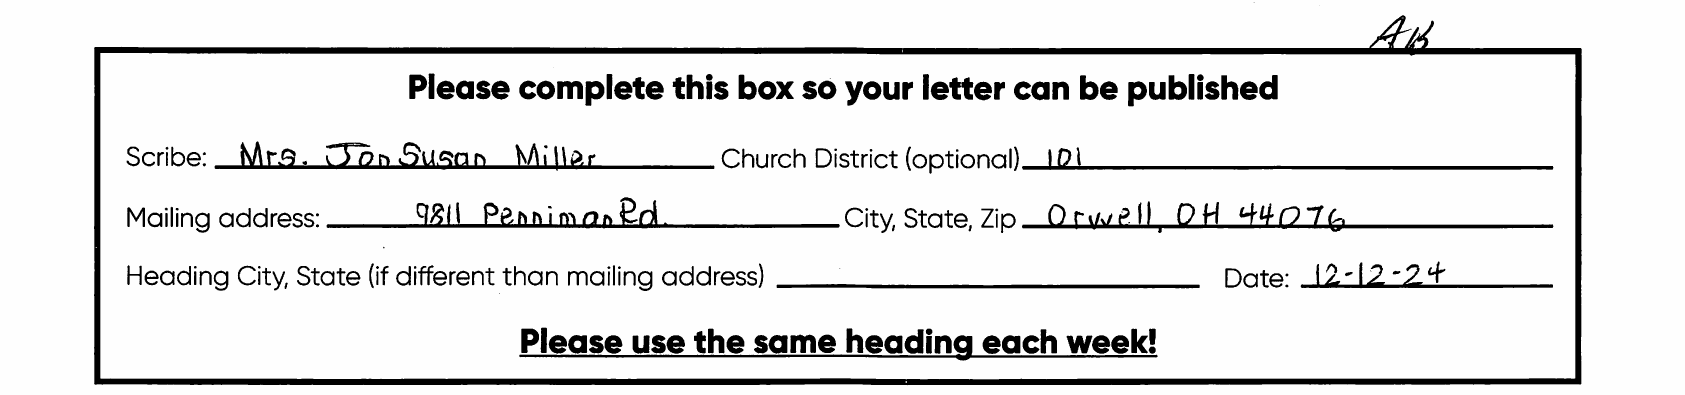 AK
Please complete this box so your letter can be published
Scribe: Mrs. Jon Susan Miller Church District (optional) 101
Mailing address: 9811 Penniman Rd. City, State, Zip Orwell, OH 44076
Heading City, State (if different than mailing address) Date: 12-12-24
Please use the same heading each week!